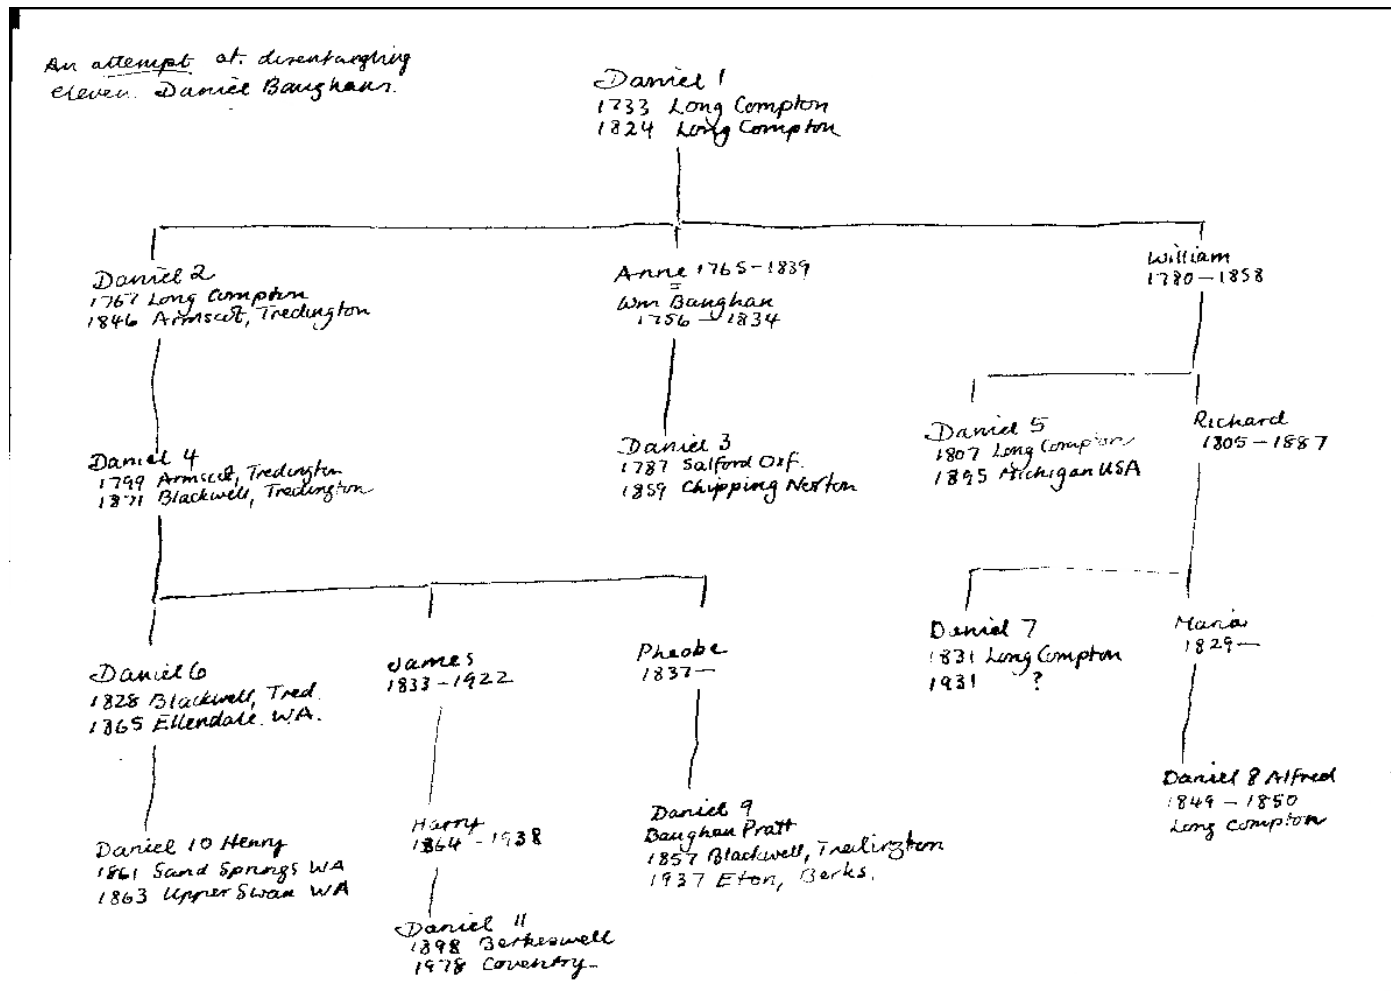 An attempt at disentangling
eleven Daniel Baughans.
Daniel 1
1733 Long Compton
1824 Long Compton
Daniel 2
1767 Long Compton
1846 Armscot, Tredington
Anne 1765-1839
=
Wm Baughan
1756 - 1834
William
1780-1858
Daniel 4
1799 Armscot, Tredington
1871 Blackwell, Tredington
Daniel 3
1787 Salford Oxf.
1859 Chipping Norton
Daniel 5
1807 Long Compton
1895 Michigan USA
Richard
1805-1887
Daniel 6
1828 Blackwell, Tred.
1865 Ellendale WA.
James
1833-1922
Pheobe
1837-
Daniel 7
1831 Long Compton
1931 ?
Maria
1829-
Daniel 10 Henry
1861 Sand Springs WA
1863 Upper Swan WA
Harry
1864-1938
Daniel 9
Baughan Pratt
1857 Blackwell, Tredington
1937 Eton, Berks.
Daniel 8 Alfred
1849-1850
Long Compton
Daniel 11
1898 Berkeswell
1978 Coventry-